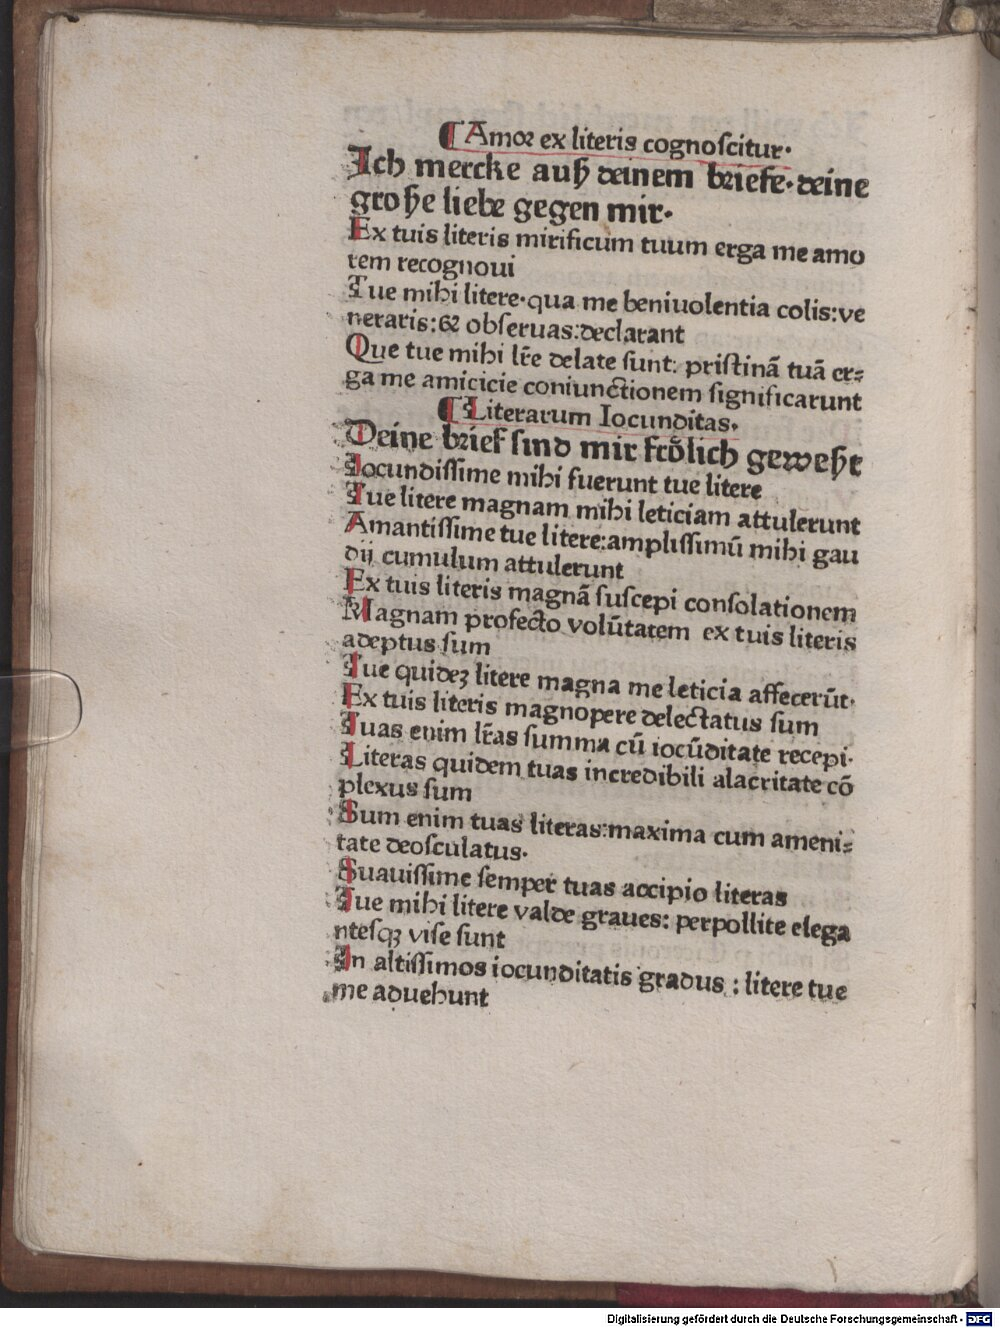 ¶ Amor ex literis cognoſcitur.
Ich mercke auß deinem briefe. deine
große liebe gegen mir.
Ex tuis literis mirificum tuum erga me amo
rem recognoui
Tue mihi litere. qua me beniuolentia colis: ve
neraris: & obſeruas: declarant
Que tue mihi lr̃e delate ſunt: priſtinã tuã er⸗
ga me amicicie coniunctionem significarunt
¶ Literarum Iocunditas.
Deine brief ſind mir frölich geweßt
Iocundiſſime mihi fuerunt tue litere
Tue litere magnam mihi leticiam attulerunt
Amantiſſime tue litere: ampliſſimũ mihi gau
dij cumulum attulerunt
Ex tuis literis magnã ſuſcepi conſolationem
Magnam profecto volũtatem ex tuis literis
adeptus ſum
Tue quideꝫ litere magna me leticia affecerũt.
Ex tuis literis magnopere delectatus ſum
Tuas enim lr̃as ſumma cũ iocũditate recepi.
Literas quidem tuas incredibili alacritate cõ
plexus ſum
Sum enim tuas literas: maxima cum ameni⸗
tate deoſculatus.
Suauiſſime ſemper tuas accipio literas
Tue mihi litere valde graues: perpollite elega
nteſqꝫ viſe ſunt
In altiſſimos iocunditatis gradus : litere tue
me aduehunt
Digitalisierung gefördert durch die Deutsche Forschungsgemeinschaft - DFG